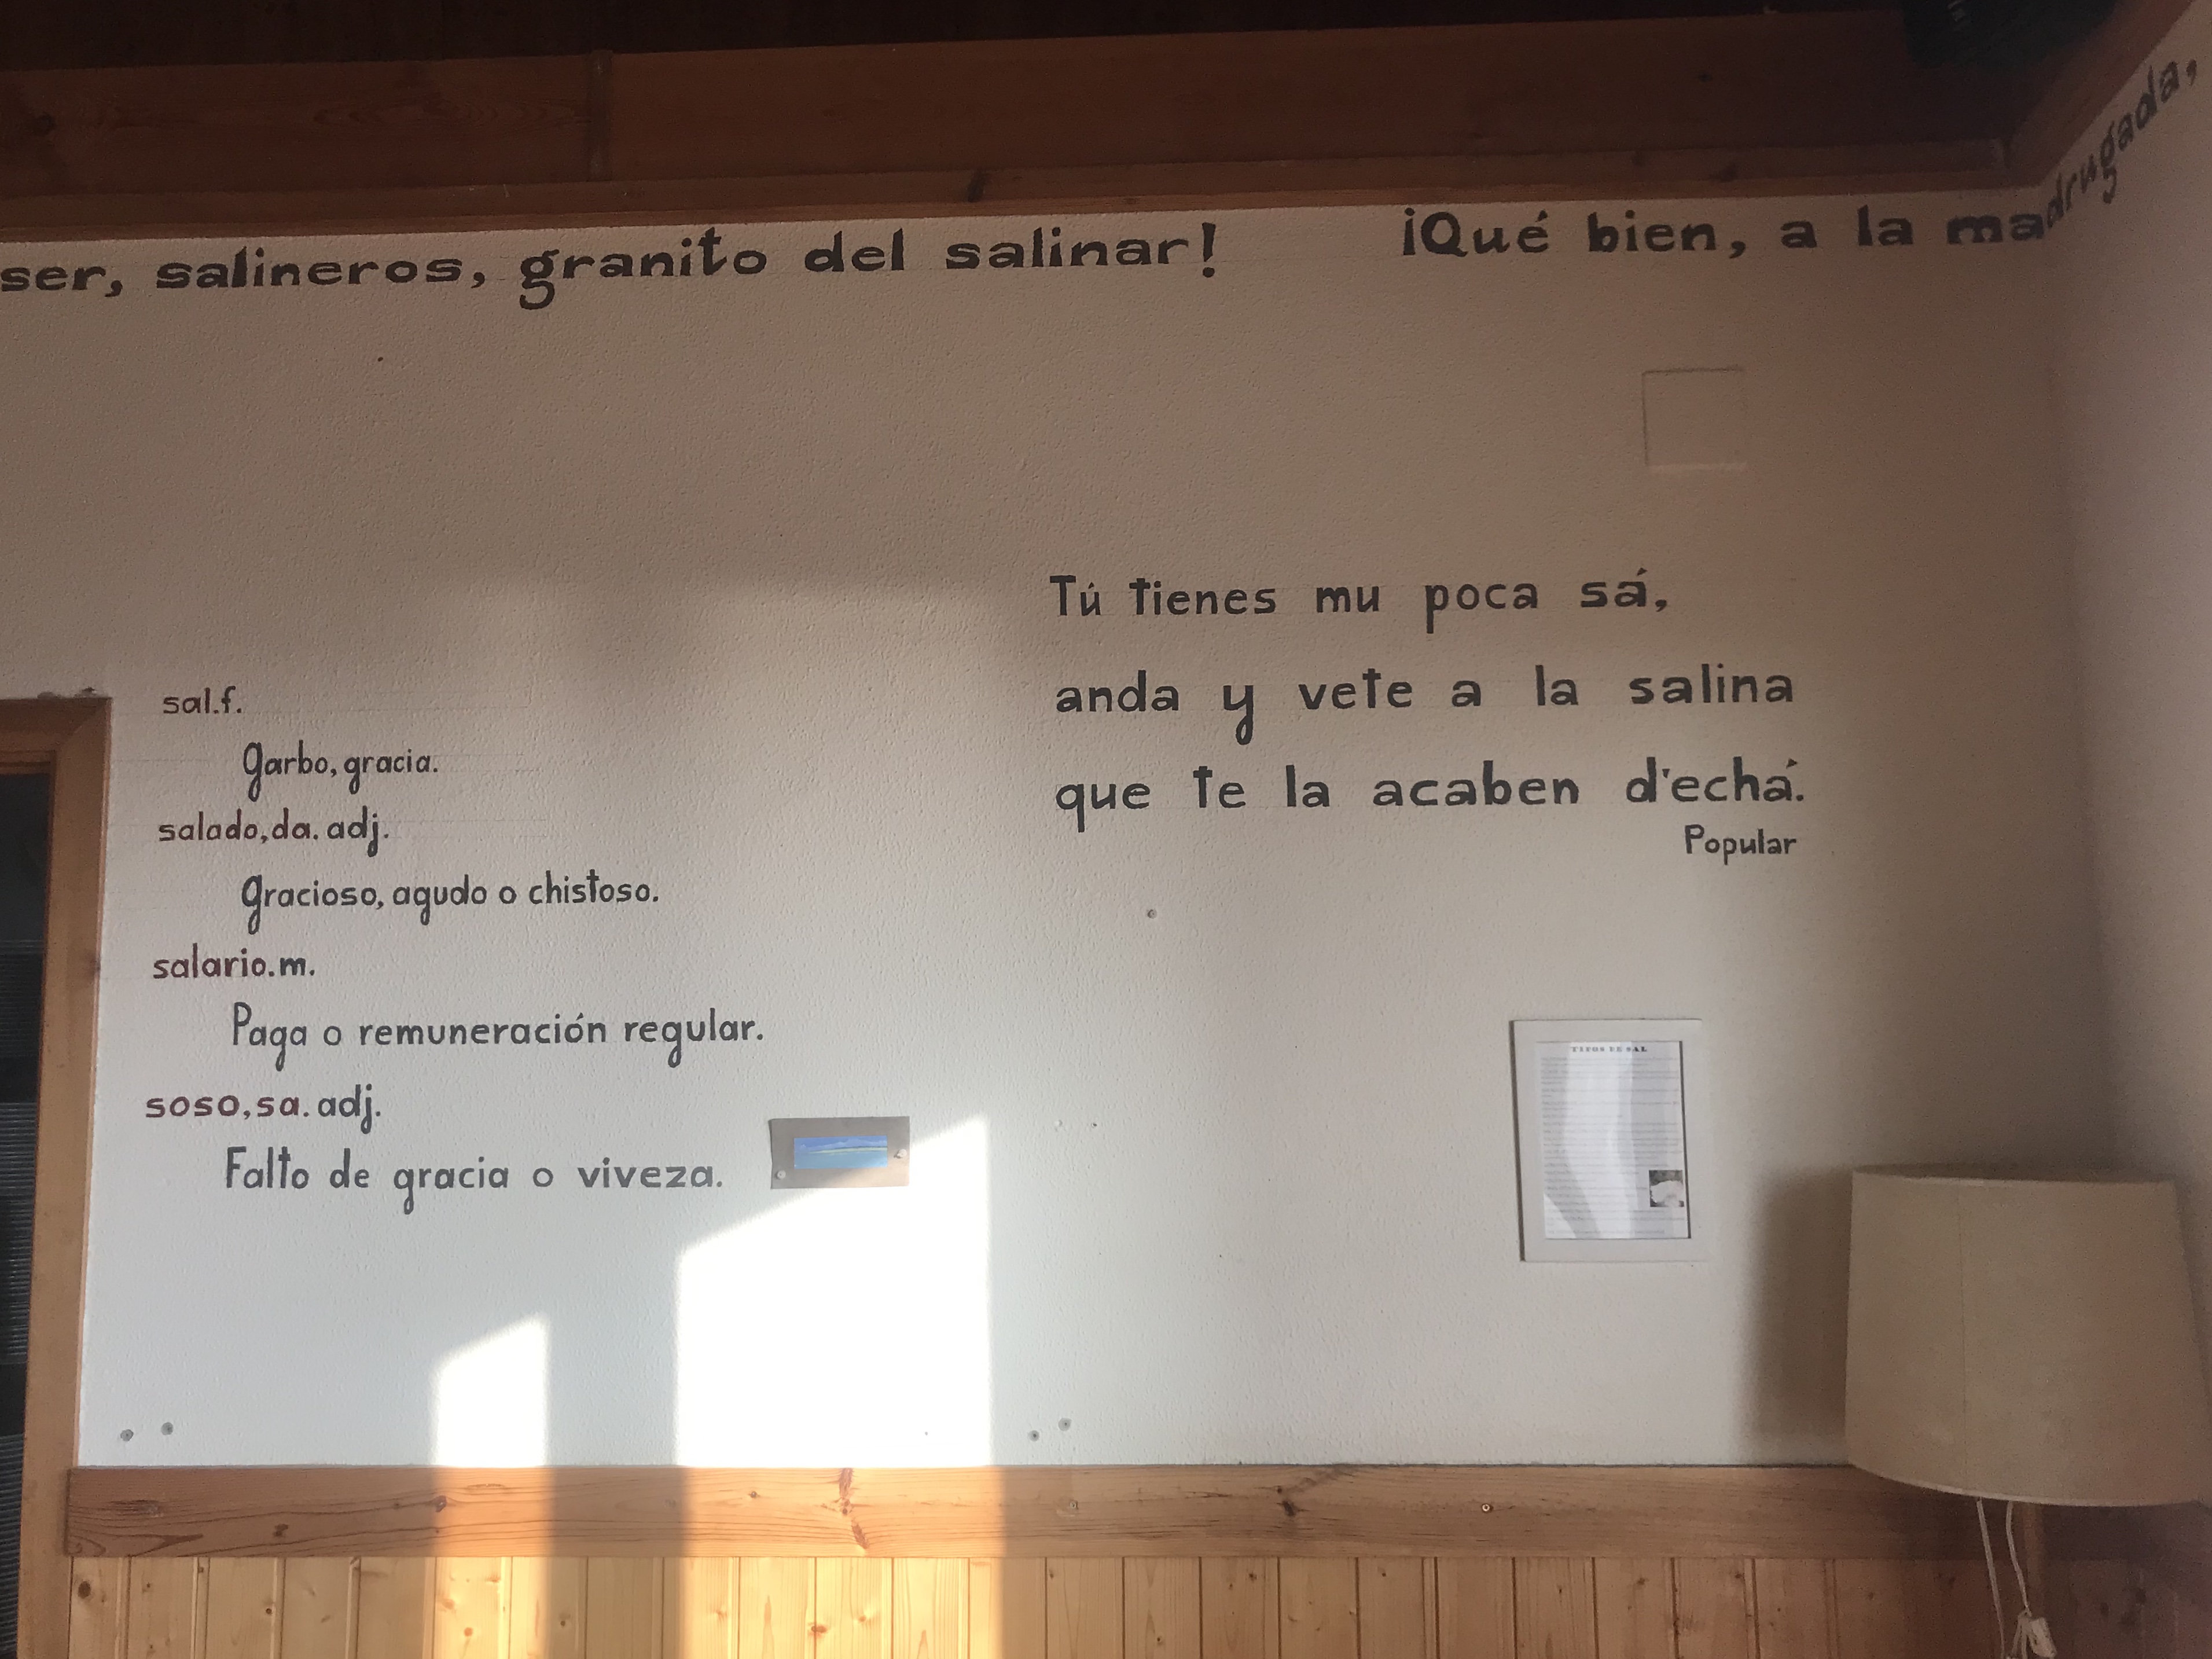 ser, salineros, granito del salinar! ¡Qué bien, a la madrugada,
sal.f.
garbo, gracia.
salado, da. adj.
gracioso, agudo o chistoso.
salario.m.
Paga o remuneración regular.
soso, sa. adj.
Falto de gracia o viveza.
Tú tienes mu poca sá,
anda y vete a la salina
que te la acaben d'echá.
Popular
TIPOS DE SAL